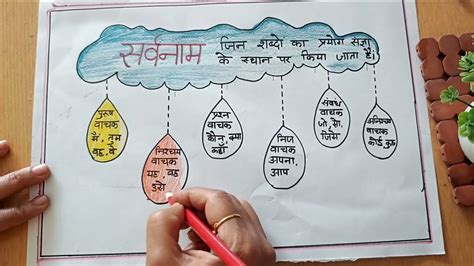 सर्वनाम जिन शब्दों का प्रयोग संज्ञा
के स्थान पर किया जाता है।
पुरुष
वाचक
मैं, तुम
वह, वे
निश्चय
वाचक
यह, वह
इसे
प्रश्न
वाचक
कौन, क्या
निज
वाचक
अपना,
आप
संबंध
वाचक
जो, सो,
वाचक
कोई, कुछ